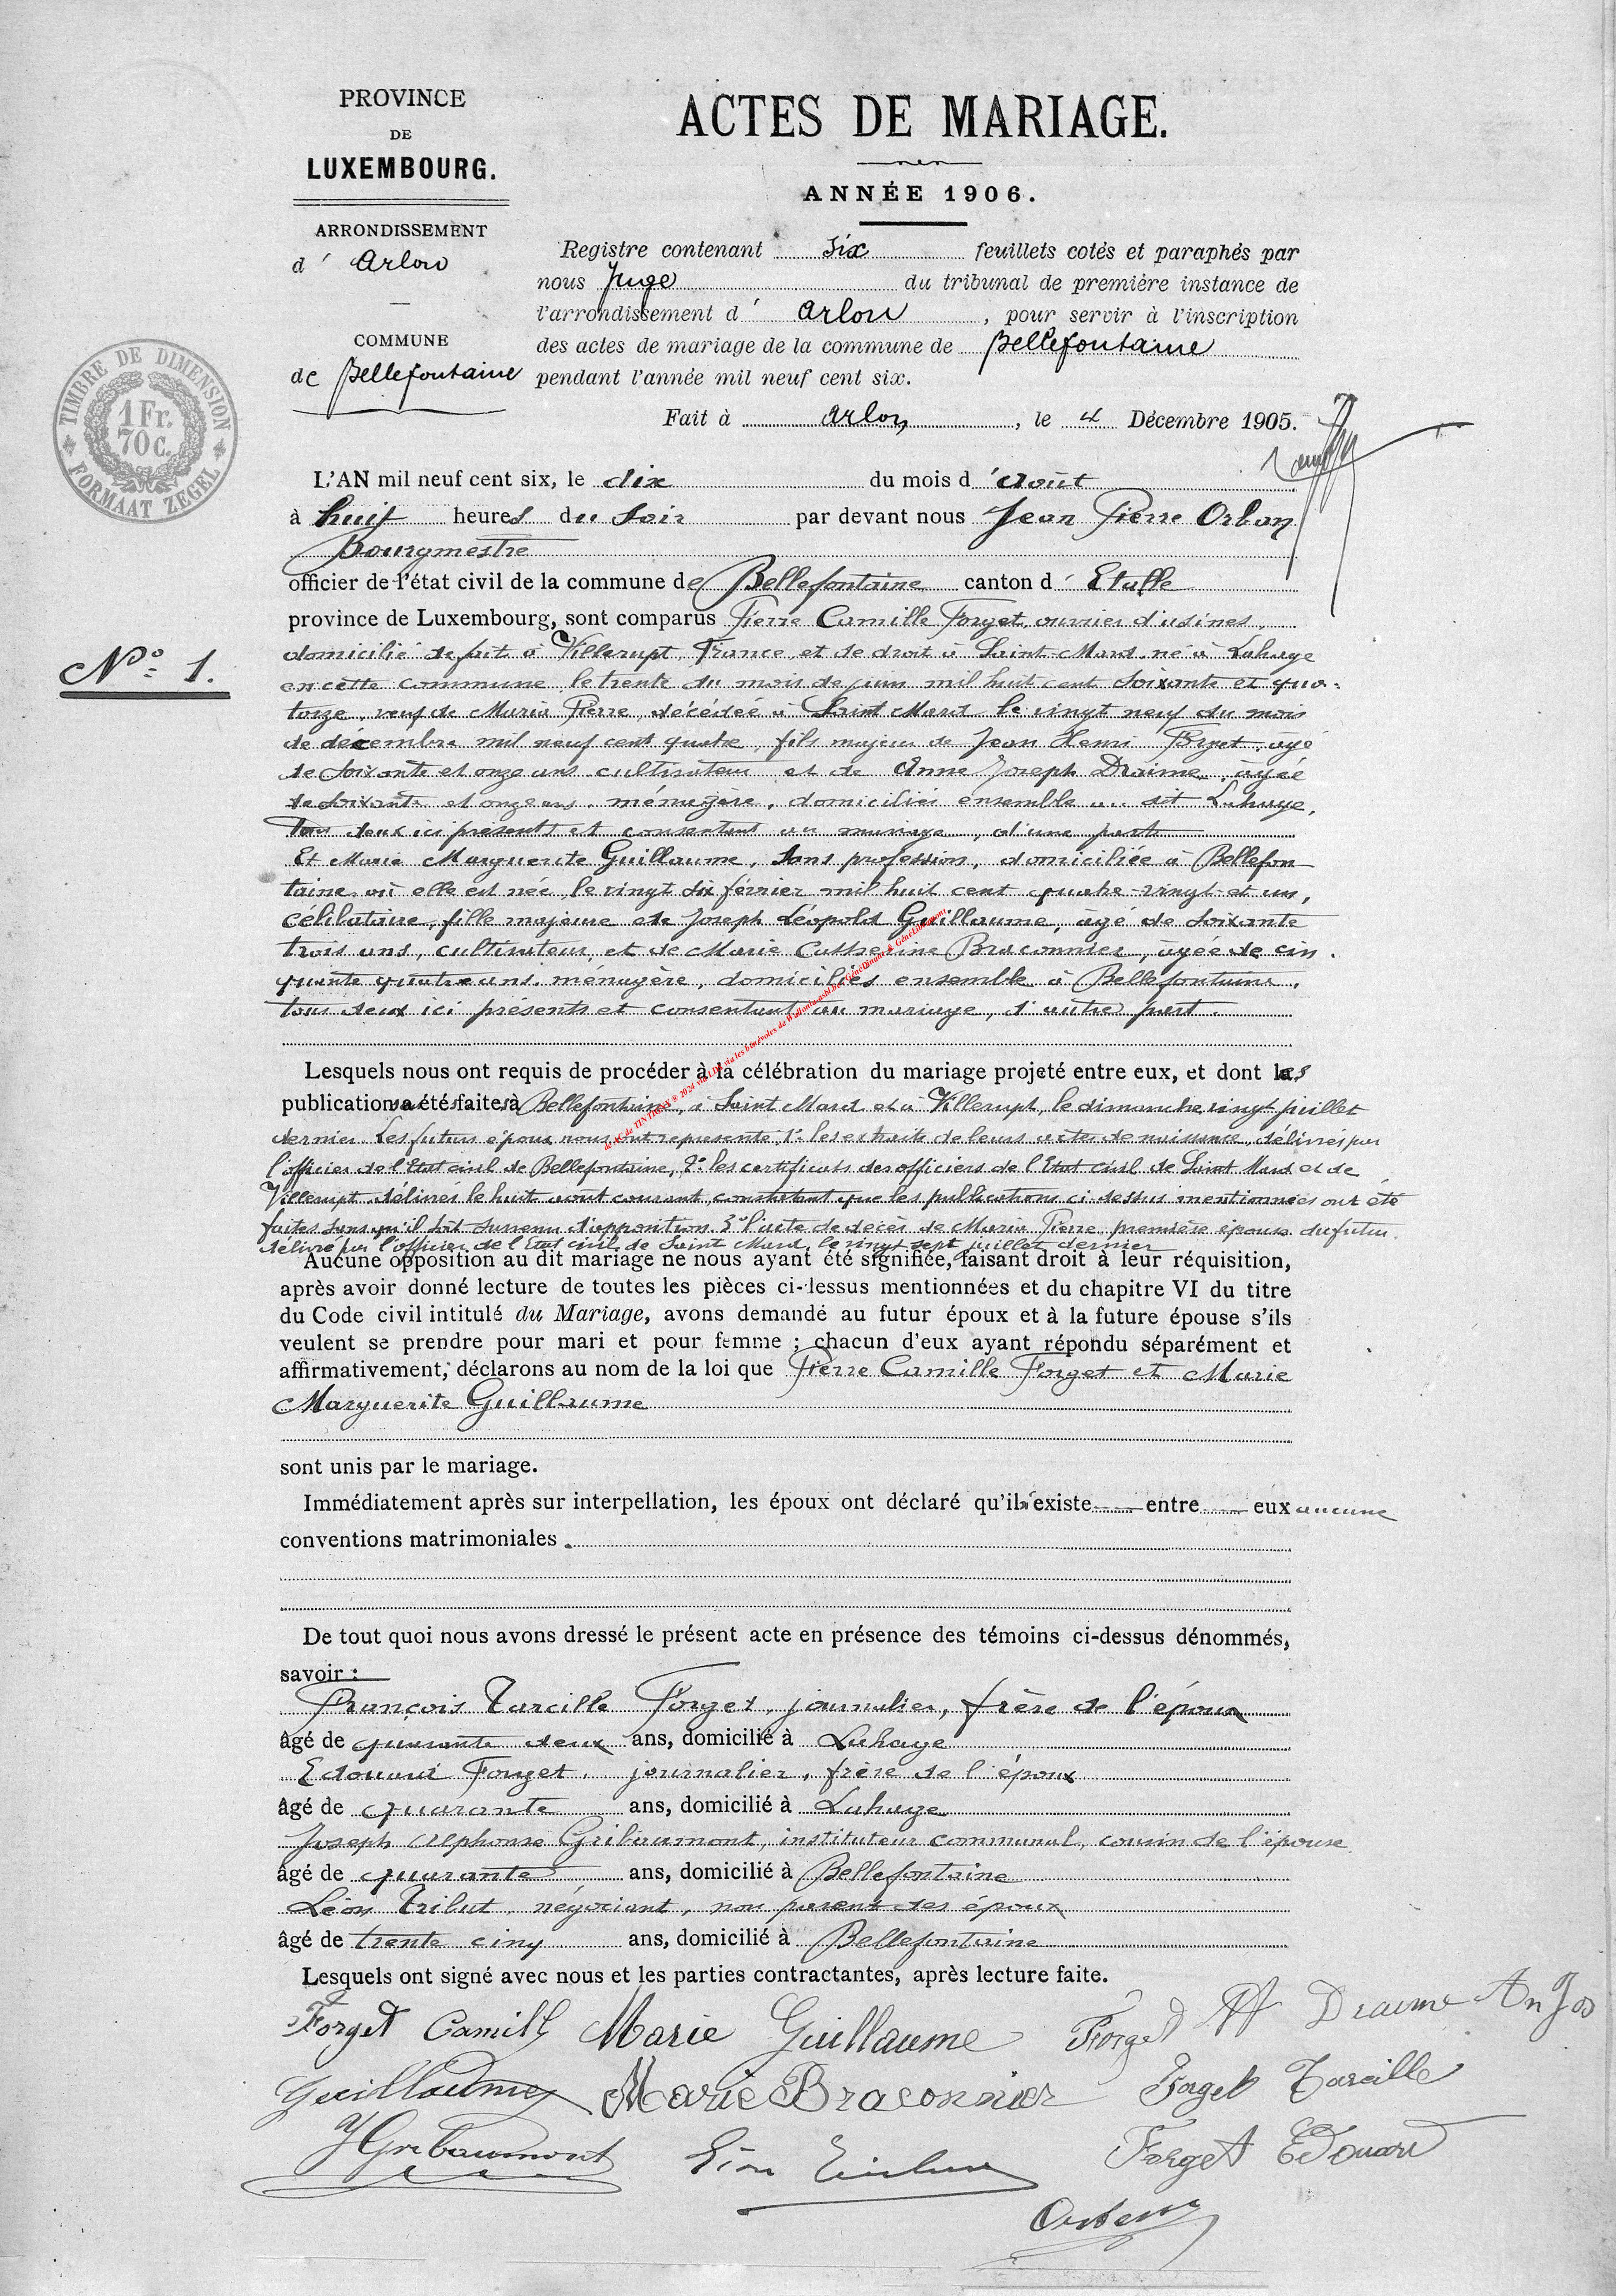 PROVINCE
DE
LUXEMBOURG.
ARRONDISSEMENT
d' Arlon
COMMUNE
de Bellefontaine
TIMBRE DE DIMENSION
1 Fr.
70 C.
FORMAAT ZEGEL
ACTES DE MARIAGE.
ANNÉE 1906.
Registre contenant six feuillets cotés et paraphés par
nous Juge du tribunal de première instance de
l'arrondissement d' Arlon, pour servir à l'inscription
des actes de mariage de la commune de Bellefontaine
pendant l'année mil neuf cent six.
Fait à Arlon, le 4 Décembre 1905.
N° 1.
L'AN mil neuf cent six, le dix du mois d'Août
à huit heures du soir par devant nous Jean Pierre Orban
Bourgmestre
officier de l'état civil de la commune de Bellefontaine canton d'Etalle
province de Luxembourg, sont comparus Pierre Camille Forget, ouvrier d'usines,
domicilié de fait à Villerupt, France, et de droit à Saint-Mard, né à Lahage
en cette commune le trente du mois de juin mil huit cent soixante et qua-
torze, veuf de Maria Pierre, décédée à Saint Mard le vingt neuf du mois
de décembre mil neuf cent quatre, fils majeur de Jean Henri Forget, âgé
de soixante et onze ans cultivateur et de Anne Joseph Draime, âgée
de soixante et onze ans, ménagère, domiciliés ensemble au dit Lahage,
tous deux ici présents et consentant au mariage, d'une part
Et Marie Marguerite Guillaume, sans profession, domiciliée à Bellefon
taine où elle est née le vingt six février mil huit cent quatre-vingt et un,
célibataire, fille majeure de Joseph Léopold Guillaume, âgé de soixante
trois ans, cultivateur, et de Marie Catherine Braconnier, âgée de cin
quante quatre ans, ménagère, domiciliés ensemble à Bellefontaine,
tous deux ici présents et consentant au mariage, d'autre part.
Lesquels nous ont requis de procéder à la célébration du mariage projeté entre eux, et dont les
publications ont été faites à Bellefontaine, à Saint Mard et à Villerupt, le dimanche vingt juillet
dernier. Les futurs époux nous ont représenté, 1° les extraits de leurs actes de naissance, délivrés par
l'officier de l'Etat civil de Bellefontaine, 2° les certificats des officiers de l'Etat civil de Saint Mard et de
Villerupt délivrés le huit août courant, constatant que les publications ci-dessus mentionnées ont été
faites sans qu'il soit survenu d'opposition, 3° l'acte de décès de Maria Pierre première épouse du futur,
délivré par l'officier de l'Etat civil de Saint Mard, le vingt sept juillet dernier
Aucune opposition au dit mariage ne nous ayant été signifiée, faisant droit à leur réquisition,
après avoir donné lecture de toutes les pièces ci-dessus mentionnées et du chapitre VI du titre
du Code civil intitulé du Mariage, avons demandé au futur époux et à la future épouse s'ils
veulent se prendre pour mari et pour femme ; chacun d'eux ayant répondu séparément et
affirmativement, déclarons au nom de la loi que Pierre Camille Forget et Marie
Marguerite Guillaume
sont unis par le mariage.
Immédiatement après sur interpellation, les époux ont déclaré qu'il n'existe entre eux aucune
conventions matrimoniales.
De tout quoi nous avons dressé le présent acte en présence des témoins ci-dessus dénommés,
savoir :
François Tarcille Forget, journalier, frère de l'époux
âgé de quarante deux ans, domicilié à Lahage
Edouard Forget, journalier, frère de l'époux
âgé de quarante ans, domicilié à Lahage
Joseph Alphonse Gribaumont, instituteur communal, cousin de l'épouse
âgé de quarante ans, domicilié à Bellefontaine
Léon Tribut, négociant, non parent des époux
âgé de trente cinq ans, domicilié à Bellefontaine
Lesquels ont signé avec nous et les parties contractantes, après lecture faite.
Forget Camille Marie Guillaume Forget Draime An Jos
Guillaume Marie Braconnier Forget Tarcille
J Gribaumont Léon Forget Edouard
Orban